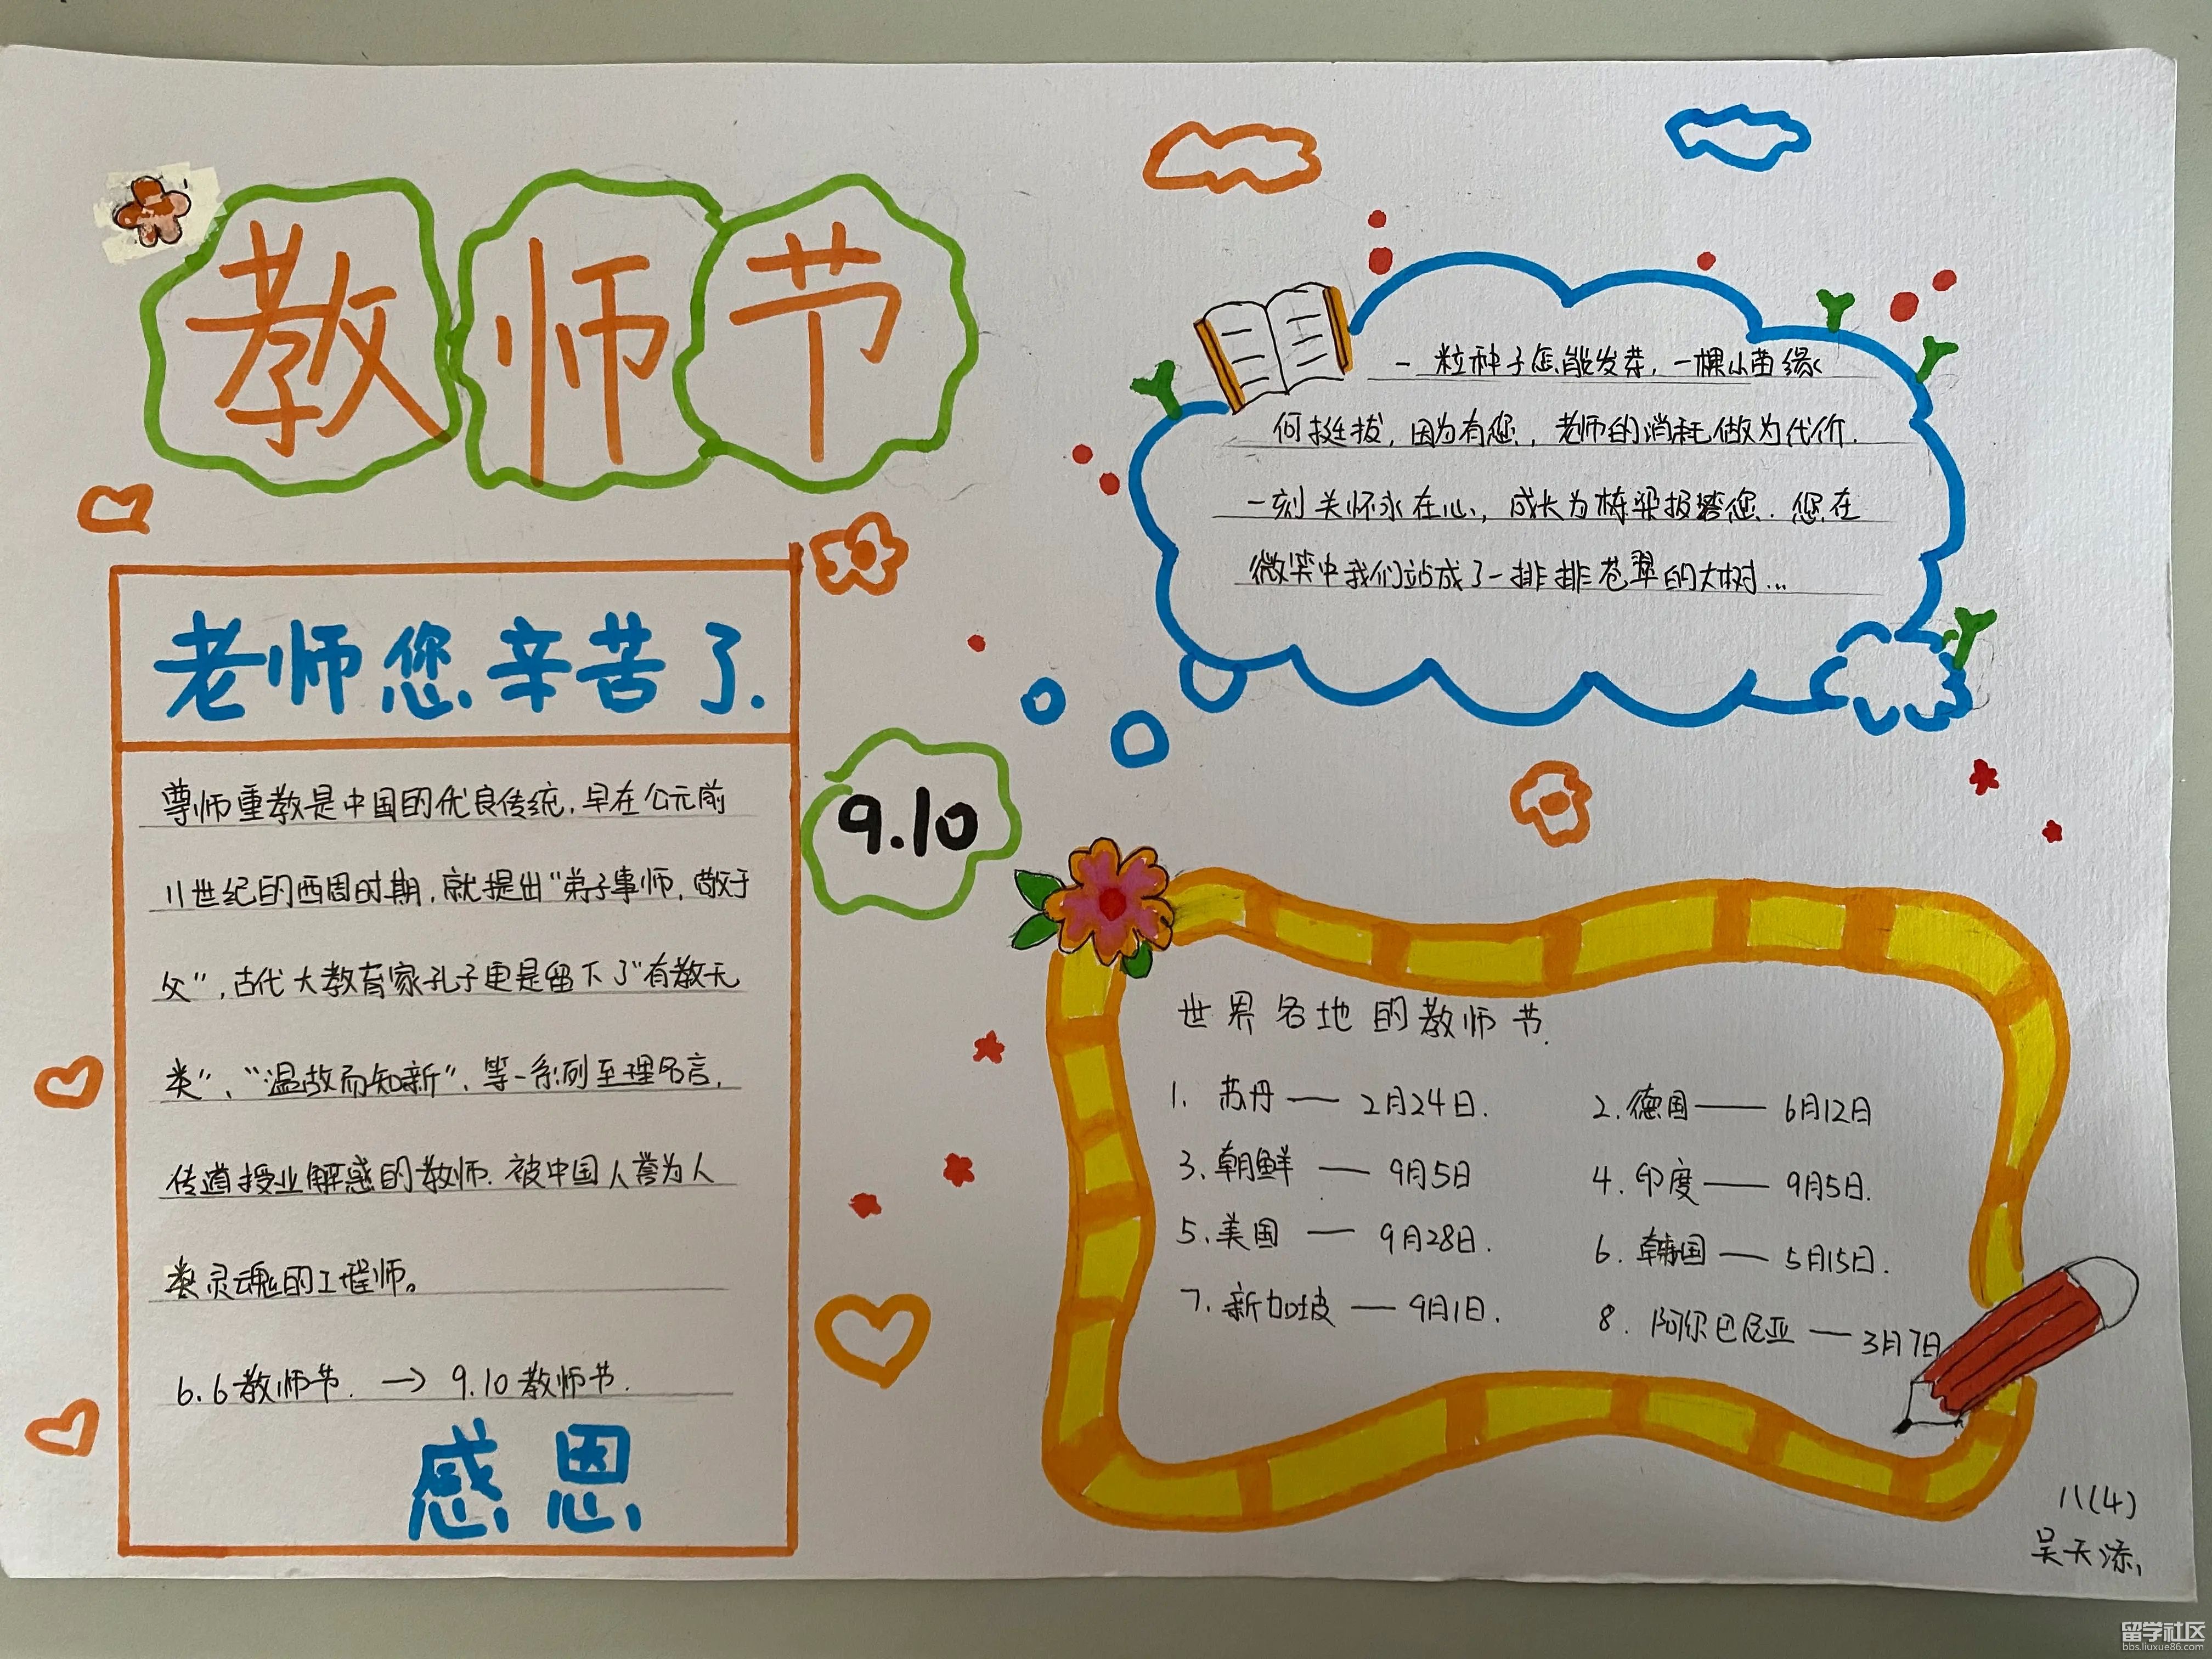 教师节
老师您辛苦了.
尊师重教是中国的优良传统,早在公元前
11世纪的西周时期,就提出“弟子事师,敬于
父”,古代大教育家孔子更是留下了“有教无
类”、“温故而知新”、等一系列至理名言,
传道授业解惑的教师.被中国人誉为人
类灵魂的工程师。
6.6教师节. → 9.10教师节.
感恩
9.10
一粒种子怎能发芽,一棵小苗缘
何挺拔,因为有您,老师的消耗做为代价.
一刻关怀永在心,成长为栋梁报答您.您在
微笑中我们站成了一排排苍翠的大树...
世界各地的教师节.
1. 苏丹——2月24日.
2.德国——6月12日
3.朝鲜——9月5日
4.印度——9月5日.
5.美国——9月28日.
6.韩国——5月15日.
7.新加坡——9月1日.
8.阿尔巴尼亚——3月7日
八(4)
吴天添
留学社区
bbs.liuxue86.com